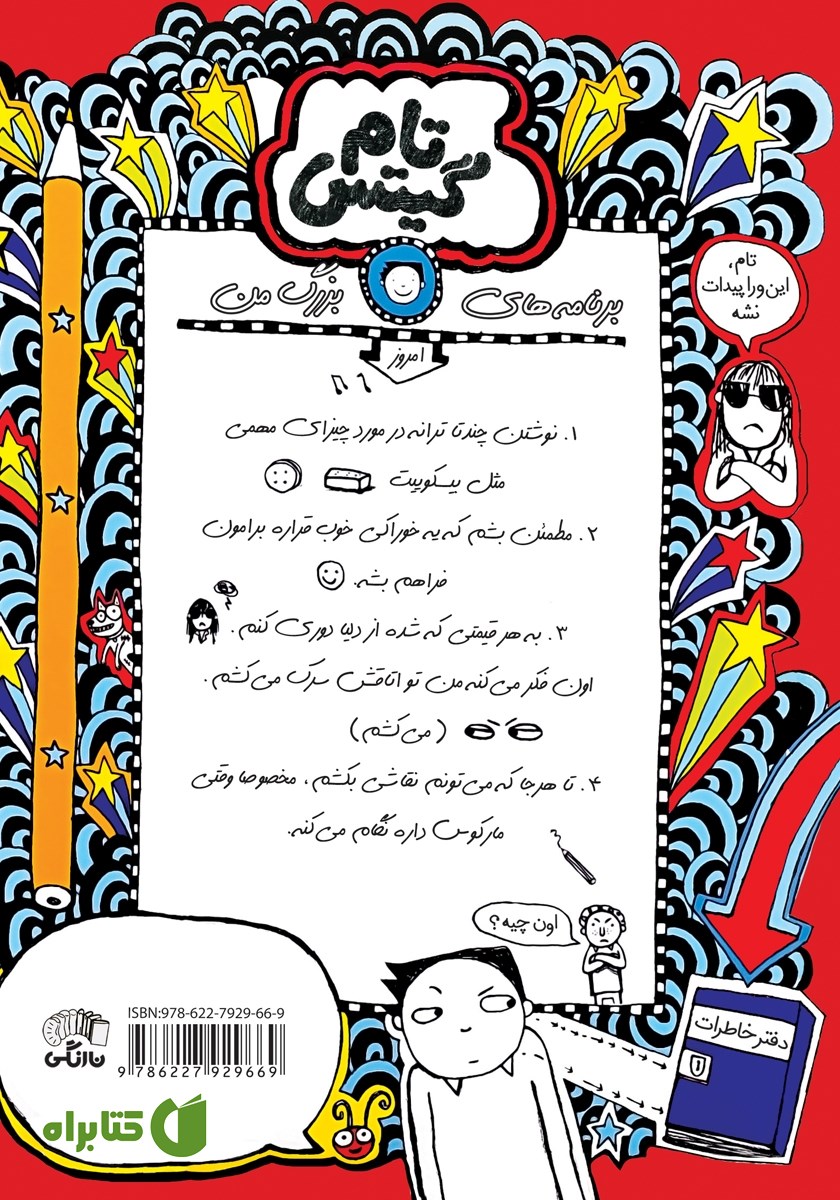 تام
گیتس
برنامه های بزرگ من
امروز
تام،
این ورا پیدات
نشه
۱. نوشتن چندتا ترانه در مورد چیزای مهمی
مثل بیسکوییت
۲. مطمئن بشم که یه خوراکی خوب قراره برامون
فراهم بشه.
۳. به هر قیمتی که شده از دلیا دوری کنم.
اون فکر می کنه من تو اتاقش سرک می کشم.
(می کشم)
۴. تا هرجا که می تونم نقاشی بکشم، مخصوصا وقتی
مارکوس داره نگام می کنه.
اون چیه؟
دفتر خاطرات
ISBN:978-622-7929-66-9
9 786227 929669
نارنگی
کتابراه